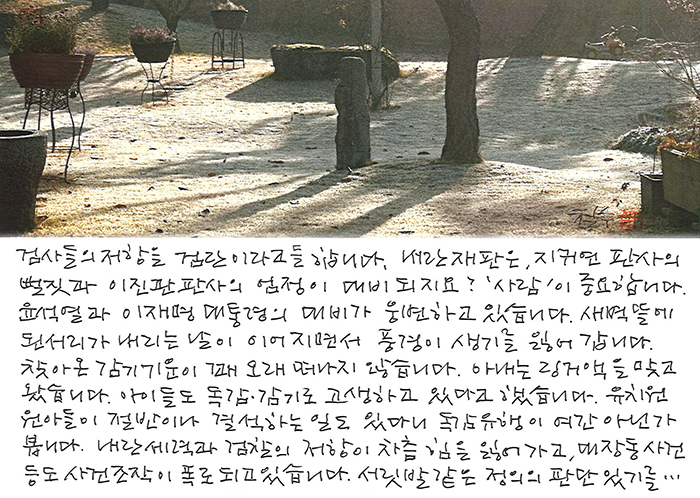 검사들의 저항을 검란이라고들 합니다. 내란재판은, 지귀연 판사의
뻘짓과 이진관판사의 엄정이 대비되지요? '사람'이 중요합니다.
윤석열과 이재명 대통령의 대비가 웅변하고 있습니다. 새벽뜰에
된서리가 내리는 날이 이어지면서 풍경이 생기를 잃어 갑니다.
찾아온 감기기운이 꽤 오래 떠나지 않습니다. 아내는 링거액을 맞고
왔습니다. 아이들도 독감·감기로 고생하고 있다고 했습니다. 유치원
원아들이 절반이나 결석하는 일도 있다니 독감유행이 여간 아닌가
봅니다. 내란세력과 검찰의 저항이 차츰 힘을 잃어가고, 대장동사건
등도 사건조작이 폭로되고있습니다. 서릿발 같은 정의의 판단 있기를…